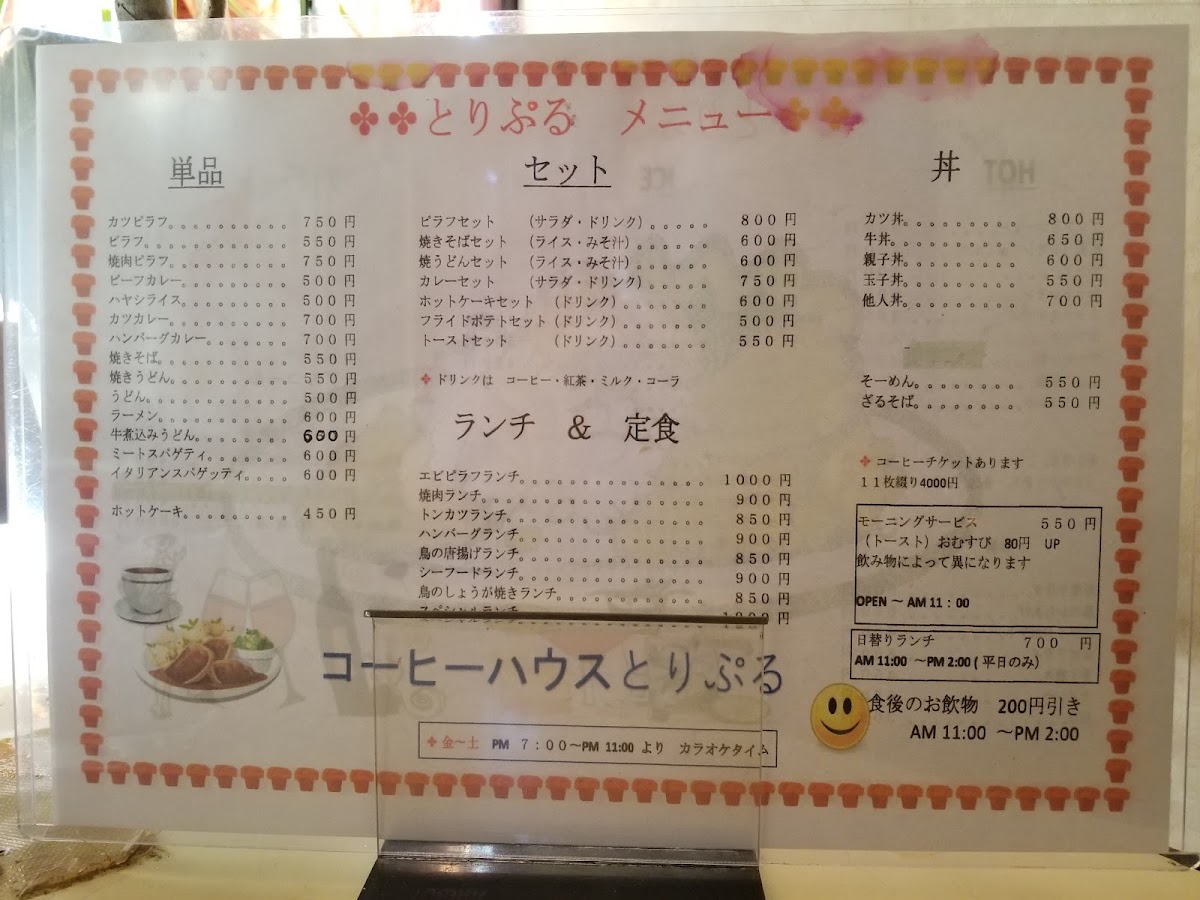 とりぷる メニュー
単品
カツピラフ。。。。。。。。。。 750円
ピラフ。。。。。。。。。。。。 550円
焼肉ピラフ。。。。。。。。。。 750円
ビーフカレー。。。。。。。。。 500円
ハヤシライス。。。。。。。。。 500円
カツカレー。。。。。。。。。。 700円
ハンバーグカレー。。。。。。。 700円
焼きそば。。。。。。。。。。。 550円
焼きうどん。。。。。。。。。。 550円
うどん。。。。。。。。。。。。 500円
ラーメン。。。。。。。。。。。 600円
牛煮込みうどん。。。。。。。。 600円
ミートスパゲティ。。。。。。。 600円
イタリアンスパゲッティ。。。。 600円
ホットケーキ。。。。。。。。。 450円
セット
ピラフセット (サラダ・ドリンク)。。。。。 800円
焼きそばセット (ライス・みそ汁)。。。。。。 600円
焼うどんセット (ライス・みそ汁)。。。。。。 600円
カレーセット (サラダ・ドリンク)。。。。。 750円
ホットケーキセット (ドリンク)。。。。。。。 600円
フライドポテトセット(ドリンク)。。。。。。。 500円
トーストセット (ドリンク)。。。。。。。 550円
ドリンクは コーヒー・紅茶・ミルク・コーラ
ランチ & 定食
エビピラフランチ。。。。。。。。。。。。。 1000円
焼肉ランチ。。。。。。。。。。。。。。。。 900円
トンカツランチ。。。。。。。。。。。。。。 850円
ハンバーグランチ。。。。。。。。。。。。。 900円
鳥の唐揚げランチ。。。。。。。。。。。。。 850円
シーフードランチ。。。。。。。。。。。。。 900円
鳥のしょうが焼きランチ。。。。。。。。。。 850円
スペシャルランチ
丼
カツ丼。。。。。。。。 800円
牛丼。。。。。。。。。 650円
親子丼。。。。。。。。 600円
玉子丼。。。。。。。。 550円
他人丼。。。。。。。。 700円
そーめん。。。。。。。 550円
ざるそば。。。。。。。 550円
コーヒーチケットあります
11枚綴り4000円
モーニングサービス 550円
(トースト)おむすび 80円 UP
飲み物によって異になります
OPEN ~ AM 11:00
日替りランチ 700 円
AM 11:00 ~PM 2:00 (平日のみ)
食後のお飲物 200円引き
AM 11:00 ~PM 2:00
コーヒーハウスとりぷる
金~土 PM 7:00~PM 11:00 より カラオケタイム